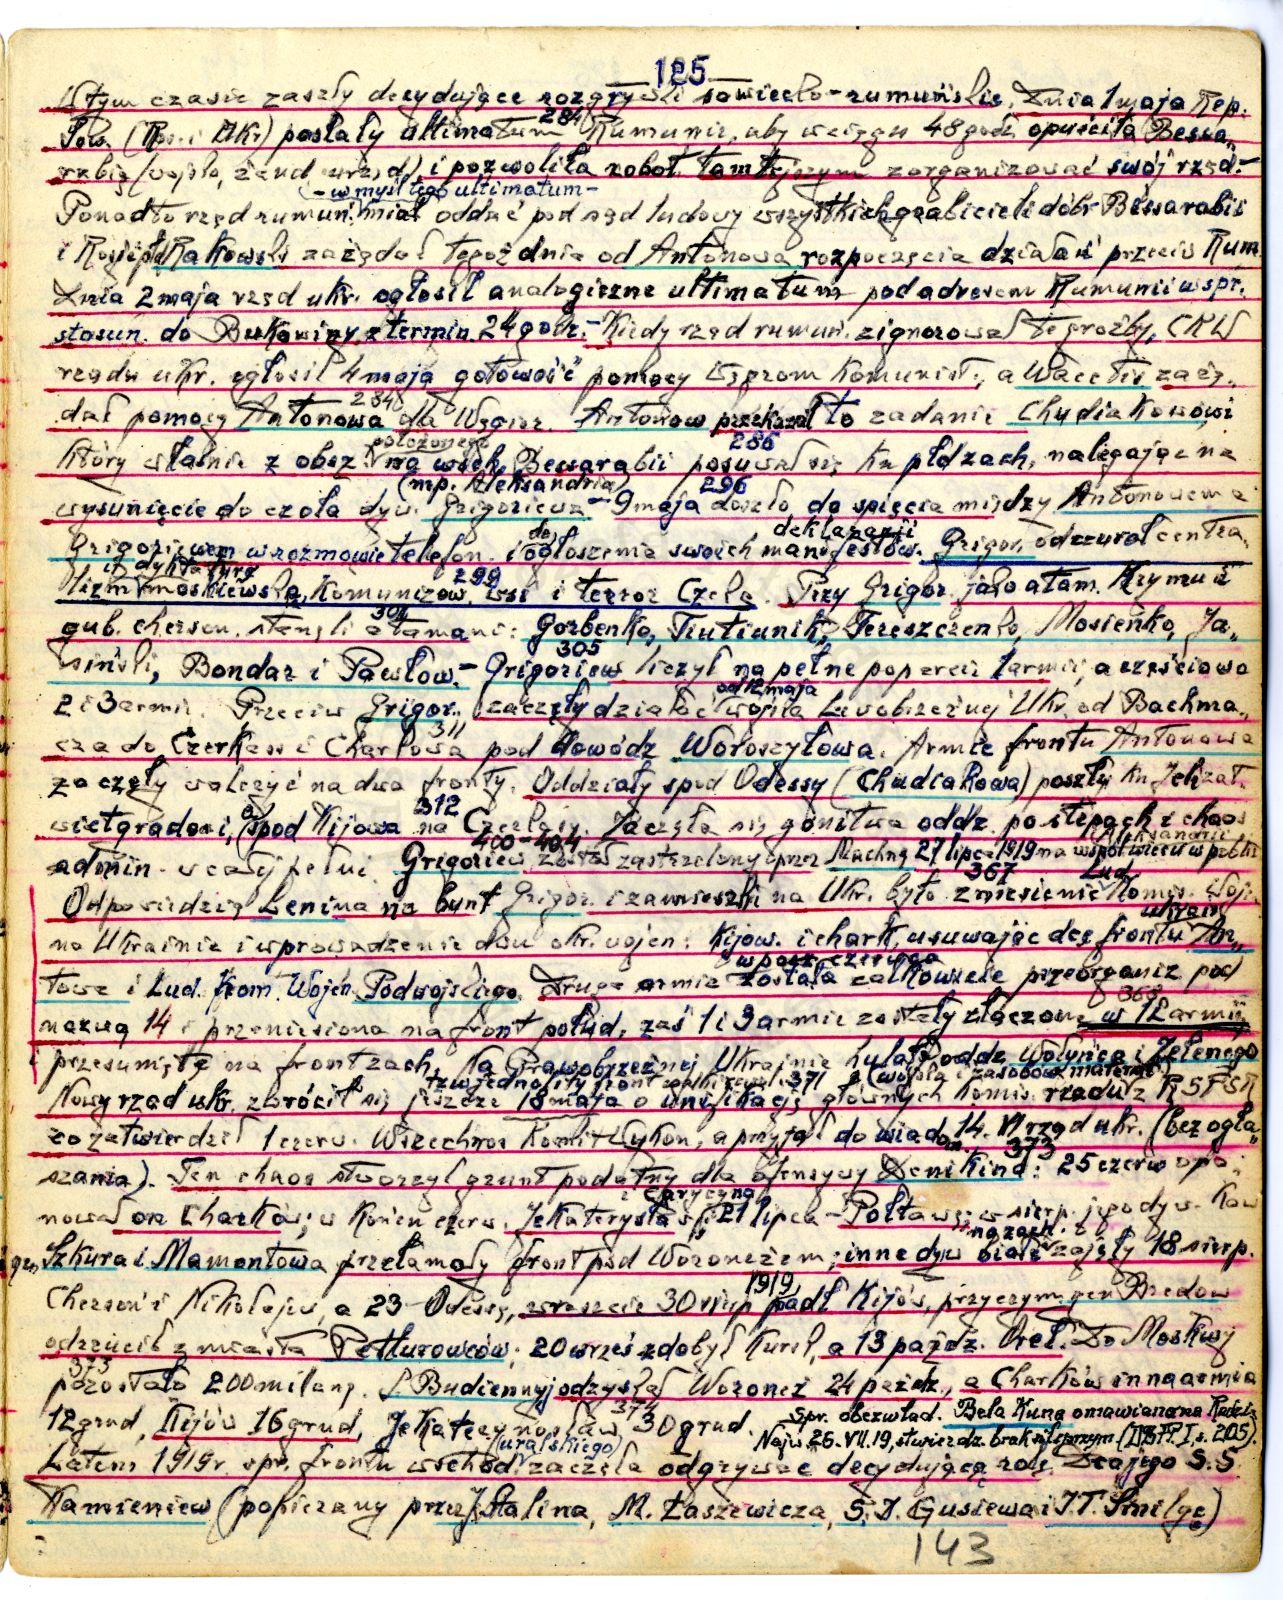 — 125 —
W tym czasie zaszły decydujące rozgrywki sowiecko-rumuńskie. Dnia 1 maja Rep.
284
Sow. (Ros. i Ukr) posłały ultimatum Rumunii, aby w ciągu 48 godz opuściła Bessa-
rabię (wojsko, żand. urzęd), i pozwoliła robot. tamtejszym zorganizować swój rząd.-
(- w myśl tego ultimatum -
Ponadto rząd rumuń. miał oddać pod sąd ludowy wszystkich grabicieli dóbr Bessarabii
i Rosji pld Rakowski zażądał tegoż dnia od Antonowa rozpoczęcia działań przeciw Rum.
Dnia 2 maja rząd ukr. ogłosił analogiczne ultimatum pod adresem Rumunii w spr.
stosun. do Bukowiny z termin. 24 godz.- Kiedy rząd rumuń. zignorował te groźby, CKW
rządu ukr. ogłosił 4 maja gotowość pomocy Węgrom komunist., a Wacetis zażą-
284
dał pomocy Antonowa dla Węgier. Antonow przekazał to zadanie Chudiakowowi
położonego 286
który właśnie z obsz. na wsch. Bessarabii posuwał się ku płdzach, nalegając na
(mp. Aleksandria) 296
wysunięcie do czoła dyw. Grigoriewa - 9 maja doszło do spięcia między Antonowem a
do deklaracji
Grigoriewem w rozmowie telefon. i ogłoszenia swoich manifestów. Grigor. odrzucał centra-
i dyktaturę 299
lizm moskiewską, komunizow. wsi i terror Czeka. Przy Grigor. jako atam. Krymu i
304
gub. cherson. stanęli atamani: Gorbenko, Tiutiunik, Tereszczenko, Mosienko, Ja-
305
siński, Bondar i Pawłow.- Grigoriew liczył na pełne poparcie 1 armii, a częściowo
od 12 maja
2 i 3 armii. Przeciw Grigor. zaczęły działać wojska Lewobrzeżnej Ukr. od Bachma-
311
cza do Czerkass i Charkowa pod dowódz Woroszyłowa. Armie frontu Antonowa
zaczęły walczyć na dwa fronty. Oddziały spod Odessy (Chudiakowa) poszły ku Jelizat.
a 312
wietgradowi, spod Kijowa na Czerkasy. Zaczęła się gonitwa oddz. po stepach i chaos
400-404 Aleksandrii
admin. w całej pełni. Grigoriew został zastrzelony przez Machnę 27 lipca 1919 na wspól. wiecu w pobliżu
367 Lud.
Odpowiedzią Lenina na bunt Grigor. i zamieszki na Ukr. było zniesienie Komis. Woj.
ukraiń
na Ukrainie i wprowadzenie dwu okr. wojen: Kijow. i chark, usuwając dcę frontu An-
w pocz. czerwca
towa i Lud. Kom. Wojen. Podwojskiego. Druga armia została całkowicie przeorganiz. pod
368
nazwą 14 i przeniesiona na front połud, zaś 1 i 3 armie zostały złączone w 12 armię
i przesunięte na front zach. Na Prawobrzeżnej Ukrajnie hulały oddz. Wołyńca i Zelenego
tzw jednolity front 371 (wojska i zasobów material)
Nowy rząd ukr. zwrócił się jeszcze 18 maja o unifikację głównych Komis. rządu z RSFSR
co zatwierdził 1 czerw. Wszechros Komit Wykon, a przyjął do wiad. 14. VI rząd ukr. (bez ogła-
373
szania). Ten chaos stworzył grunt podatny dla ofensywy Denikina: 25 czerw opa-
i Carycyna
nował on Charków, w końcu czerw. Jekaterysław, 21 lipca - Połtawę; w sierp. jego dyw. Kaw
na zach.
gen. Szkura i Mamontowa przełamały front pod Woroneżem; inne dyw białe zajęły 18 sierp.
1919
Chersoń i Nikołajew, a 23 Odessę, wreszcie 30 sierp padł Kijów, przyczym gen Bredow
odrzucił z miasta Petlurowców; 20 wrześ zdobył Kursk, a 13 paźdz. Orel. Do Moskwy
373
pozostało 200 mil ang. S. Budiennyj odzyskał Woroneż 24 paźdz., a Charków inna armia
374
12 grud, Kijów 16 grud, Jekaterynosław 30 grud. Spr. obezwład. Bela Kuna omawiana na Radzie
(uralskiego) Najw. 26. VII. 19, stwierdz. brak sił przym. (DBFP. I, s. 205).
Latem 1919 r. spr. frontu wschod. zaczęła odgrywać decydującą rolę. Dcą jego S.S.
Kamieniew (popierany przez J. Stalina, M. Łaszewicza, S. I. Gusiewa i I.T. Smilgę)
143